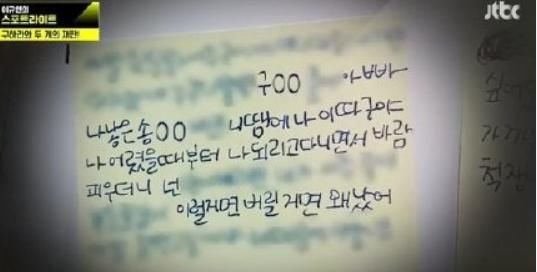 이규연의
스포트라이트
구하라와 두 개의 재판!
jtbc
구OO 아빠
나낳은 송OO 니땜에 나 이따구야
나 어렸을때부터 나 되리고다니면서 바람
피우더니 넌
이럴거면 버릴 거면 왜 났어